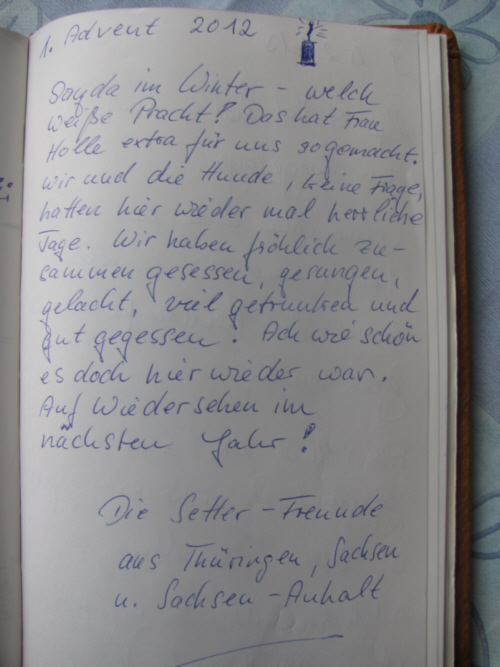 1. Advent 2012
Sayda im Winter - welch
weiße Pracht! Das hat Frau
Holle extra für uns so gemacht.
Wir und die Hunde, keine Frage,
hatten hier wieder mal herrliche
Tage. Wir haben fröhlich zu-
sammen gesessen, gesungen,
gelacht, viel getrunken und
gut gegessen. Ach wie schön
es doch hier wieder war.
Auf Wiedersehen im
nächsten Jahr!
Die Setter-Freunde
aus Thüringen, Sachsen
u. Sachsen-Anhalt